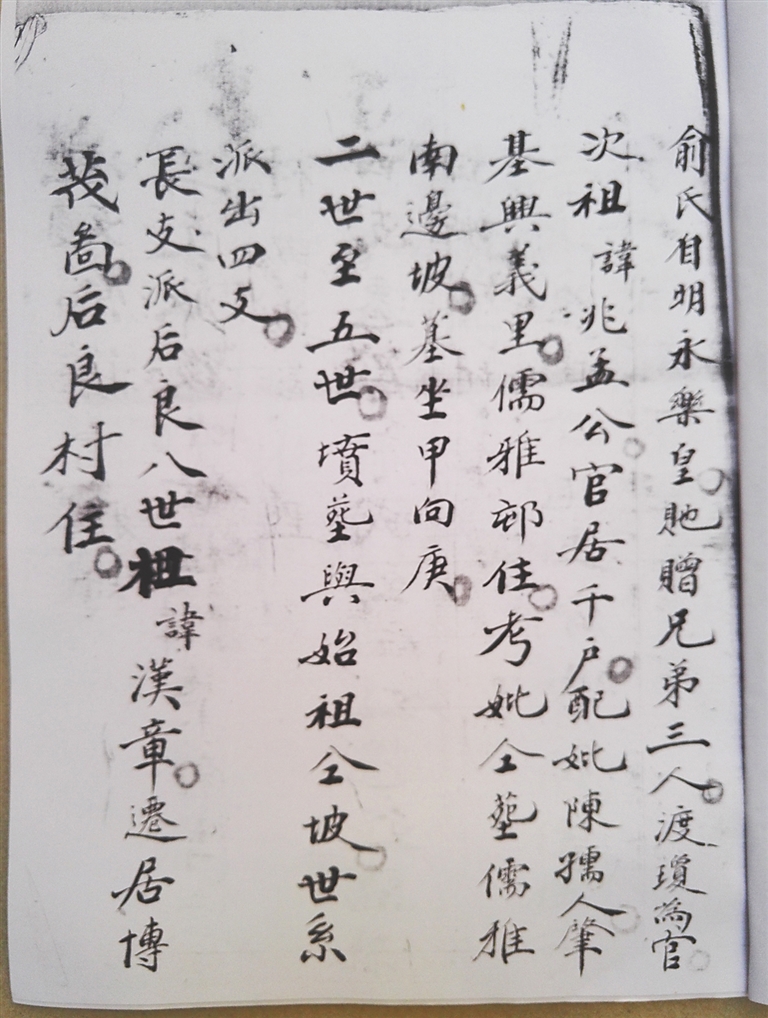 俞氏自明永樂皇貤贈兄弟三人渡瓊為官
次祖諱兆孟公官居千户配妣陳孺人肇
基興義里儒雅邨住考妣仝塟儒雅
南邊坡墓坐甲向庚
二世至五世墳塋與始祖仝坡世系
派出四支
長支派后良八世祖諱漢章遷居博
茂啚后良村住